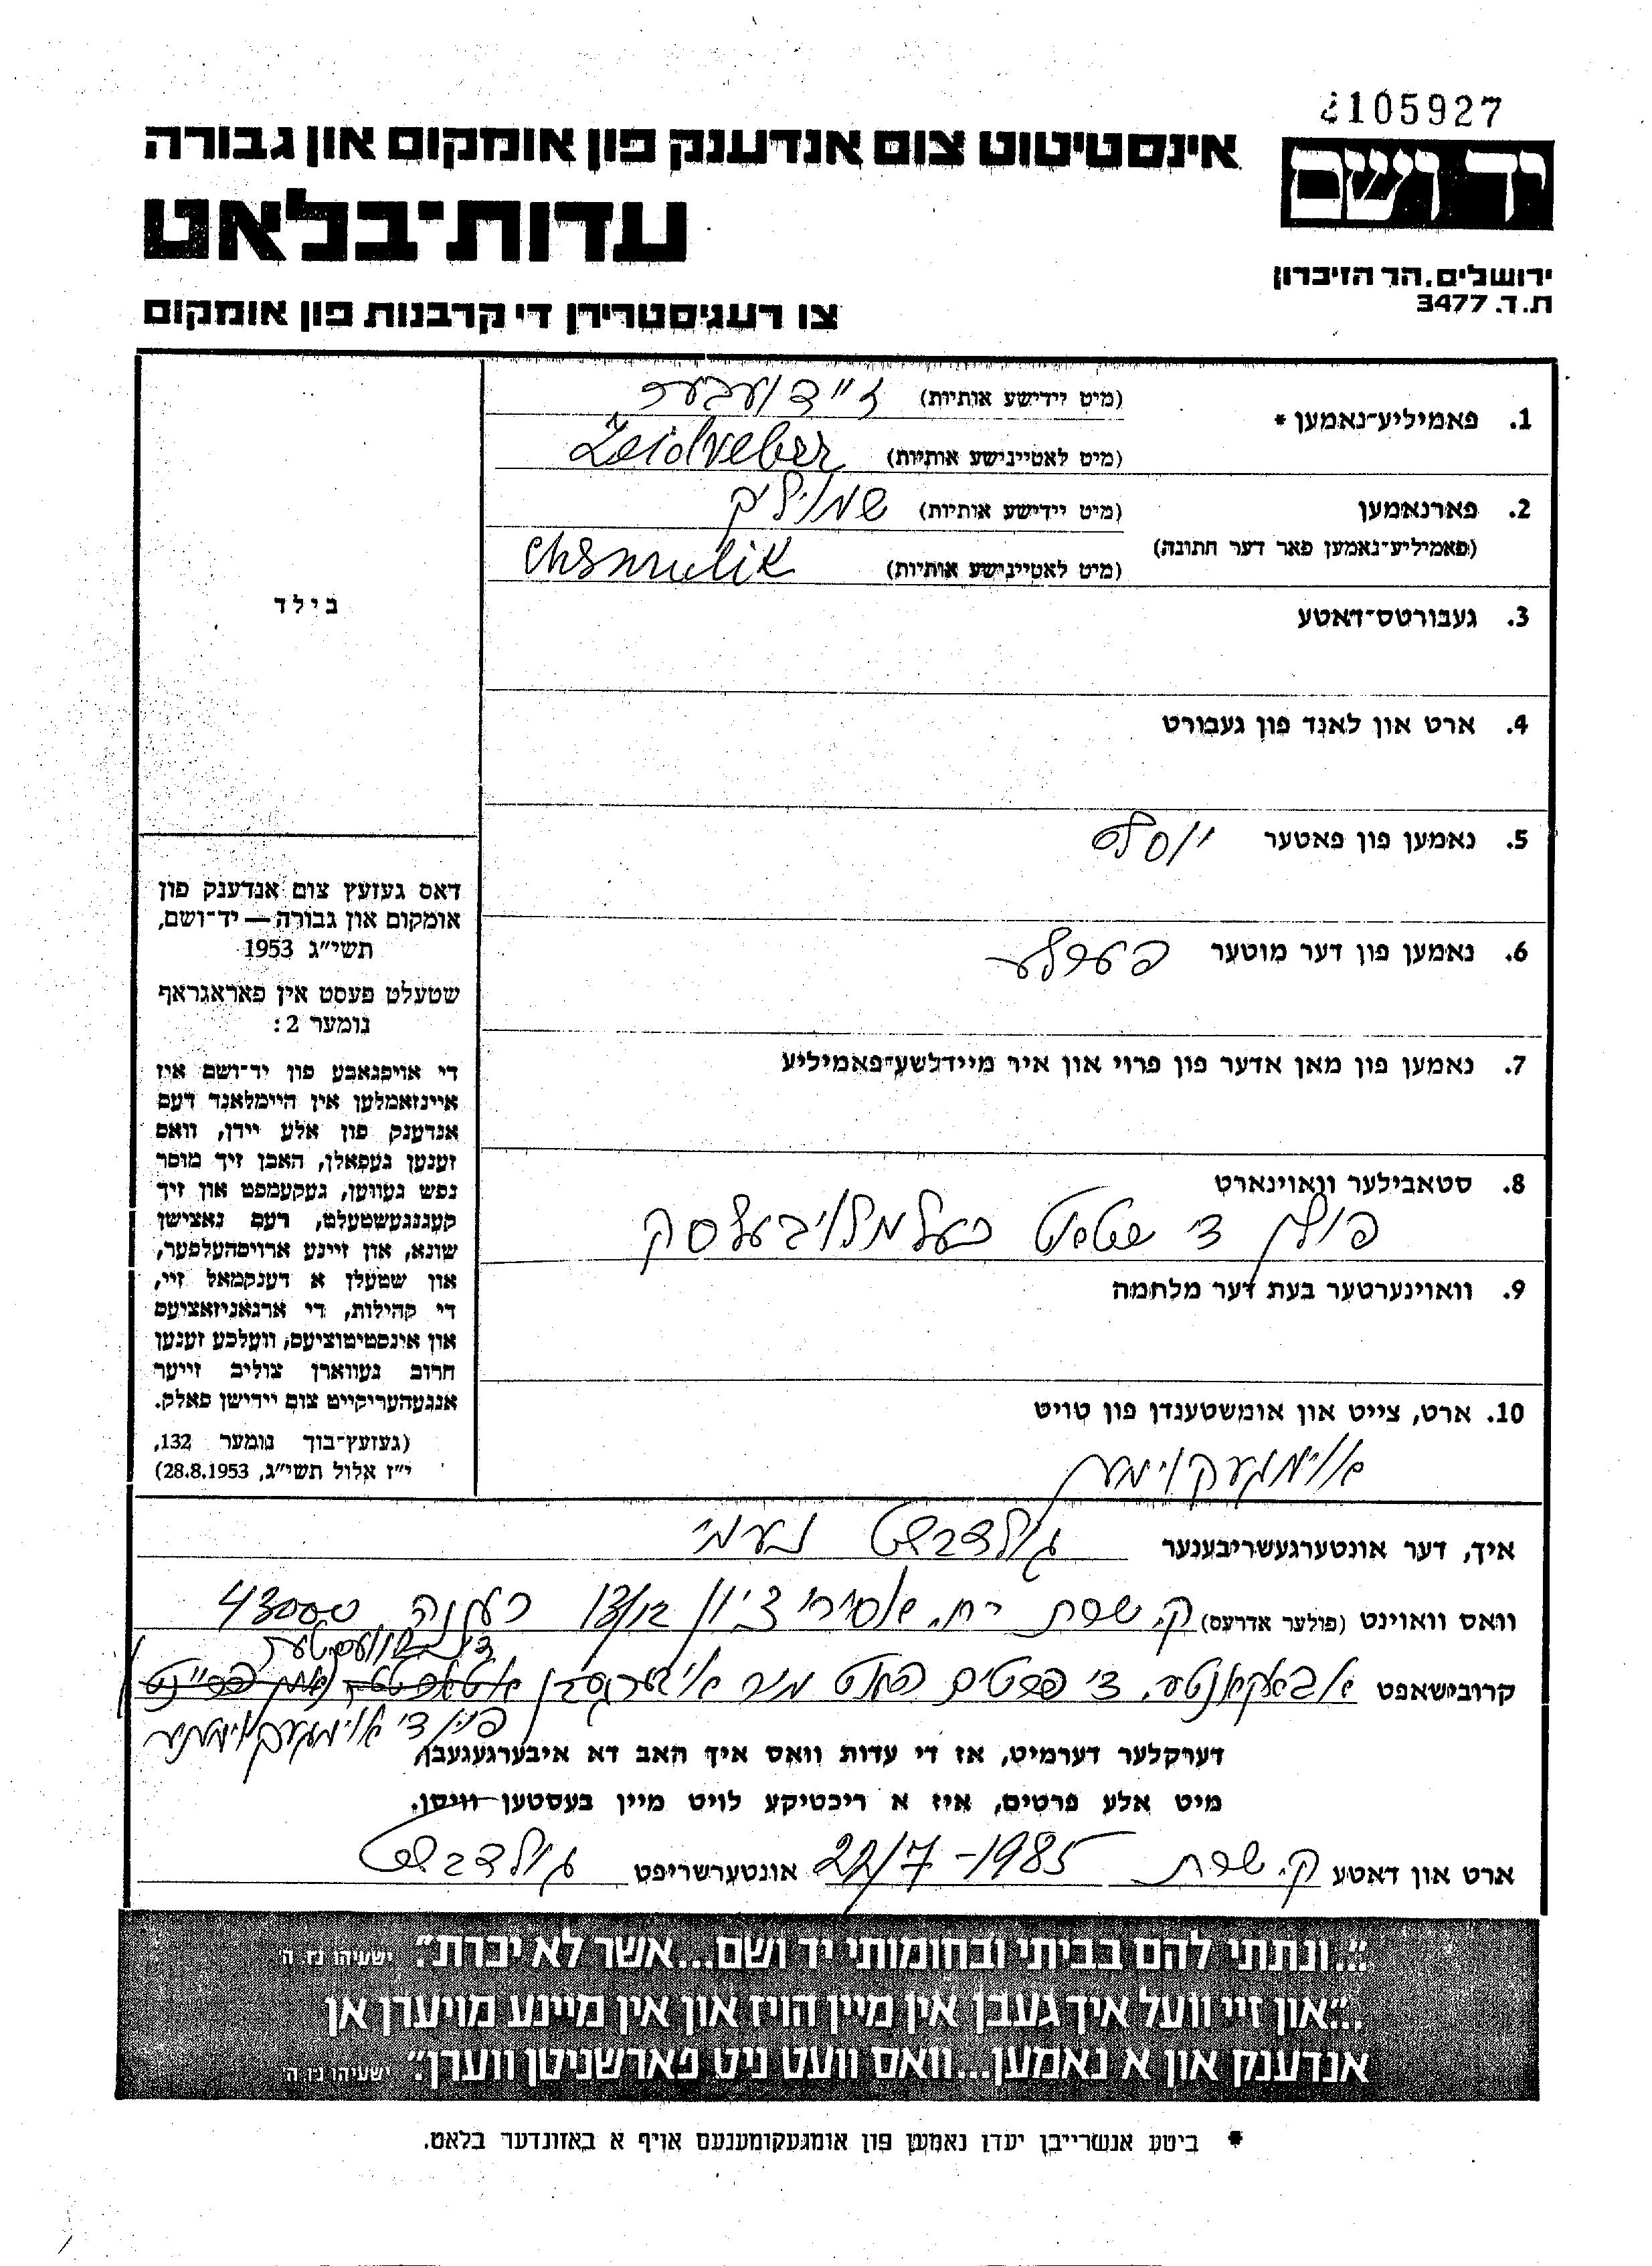 2105927
יד ושם
אינסטיטוט צום אנדענק פון אומקום און גבורה
עדות־בלאט
ירושלים, הר הזיכרון
ת. ד. 3477
צו רעגיסטרירן די קרבנות פון אומקום
1. פאמיליע־נאמען * (מיט יידישע אותיות) זיידוועבער
(מיט לאטיינישע אותיות) Zeidveber
2. פארנאמען (מיט יידישע אותיות) שמוליק
(פאמיליע־נאמען פאר דער חתונה) (מיט לאטיינישע אותיות) Chsmulik
בילד
3. געבורטס־דאטע
4. ארט און לאנד פון געבורט
5. נאמען פון פאטער יוסלפ
6. נאמען פון דער מוטער פערלע
7. נאמען פון מאן אדער פון פרוי און איר מיידלשע־פאמיליע
8. סטאבילער וואוינארט
פולין די שטאט
9. וואוינערטער בעת דער מלחמה
10. ארט, צייט און אומשטענדן פון טויט
אומגעקומען
דאס געזעץ צום אנדענק פון
אומקום און גבורה — יד־ושם,
תשי״ג 1953
שטעלט פעסט אין פאראגראף
נומער 2:
די אויפגאבע פון יד־ושם איז
איינזאמלען אין היימלאנד דעם
אנדענק פון אלע יידן, וואס
זענען געפאלן, האבן זיך מוסר
נפש געווען, געקעמפט און זיך
קעגנגעשטעלט, דעם נאצישן
שונא, און זיינע ארויסהעלפער,
און שטעלן א דענקמאל זיי,
די קהילות, די ארגאניזאציעס
און אינסטיטוציעס, וועלכע זענען
חרוב געווארן צוליב זייער
אנגעהעריקייט צום יידישן פאלק.
(געזעץ־בוך נומער 132,
י״ז אלול תשי״ג, 28.8.1953)
איך, דער אונטערגעשריבענער גולדברט נעמי
וואס וואוינט (פולער אדרעס) ק. שרת רח. אסירי ציון 13/12 רעננה 43000
קרובישאפט א באקאנטע. די פרטים האט מיר איבערגעגעבן
פון די אומגעקומענער
דערקלער דערמיט, אז די עדות וואס איך האב דא איבערגעגעבן
מיט אלע פרטים, איז א ריכטיקע לויט מיין בעסטען וויסן.
ארט און דאטע ק. שרת 22/7-1985 אונטערשריפט גולדברט
"...ונתתי להם בביתי ובחומותי יד ושם...אשר לא יכרת" ישעיהו נו ה
"...און זיי וועל איך געבן אין מיין הויז און אין מיינע מויערן אן
אנדענק און א נאמען...וואס וועט ניט פארשניטן ווערן" ישעיהו נו ה
* ביטע אנשרייבן יעדן נאמען פון אומגעקומענעם אויף א באזונדער בלאט.